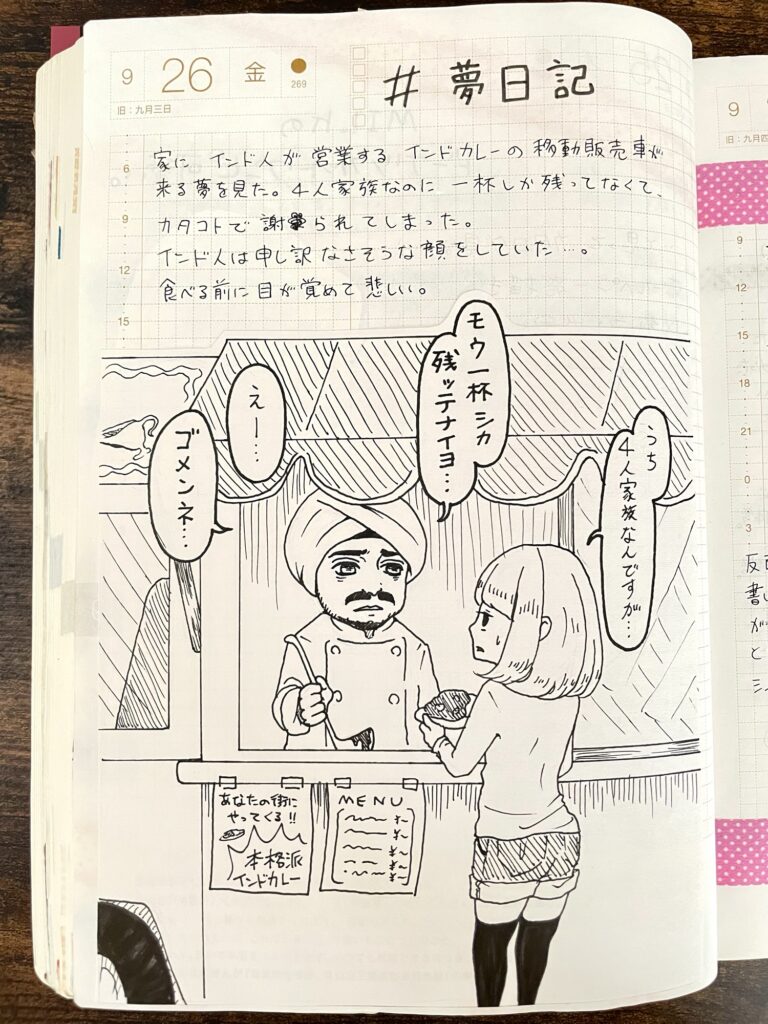 9 26 金 269
旧：九月三日
#夢日記
家に インド人が 営業する インドカレーの 移動販売車が
来る夢を見た。4人家族なのに 一杯しか残ってなくて、
カタコトで 謝られてしまった。
インド人は申し訳なさそうな顔をしていた…。
食べる前に目が覚めて悲しい。
6
9
12
15
モウ一杯シカ
残ッテナイヨ…
えー…
ゴメンネ…
うち
4人家族なんですが…
あなたの街に
やってくる!!
本格派
インドカレー
MENU
9
旧：九月四
9
12
15
18
21
0
3
書い
が
と